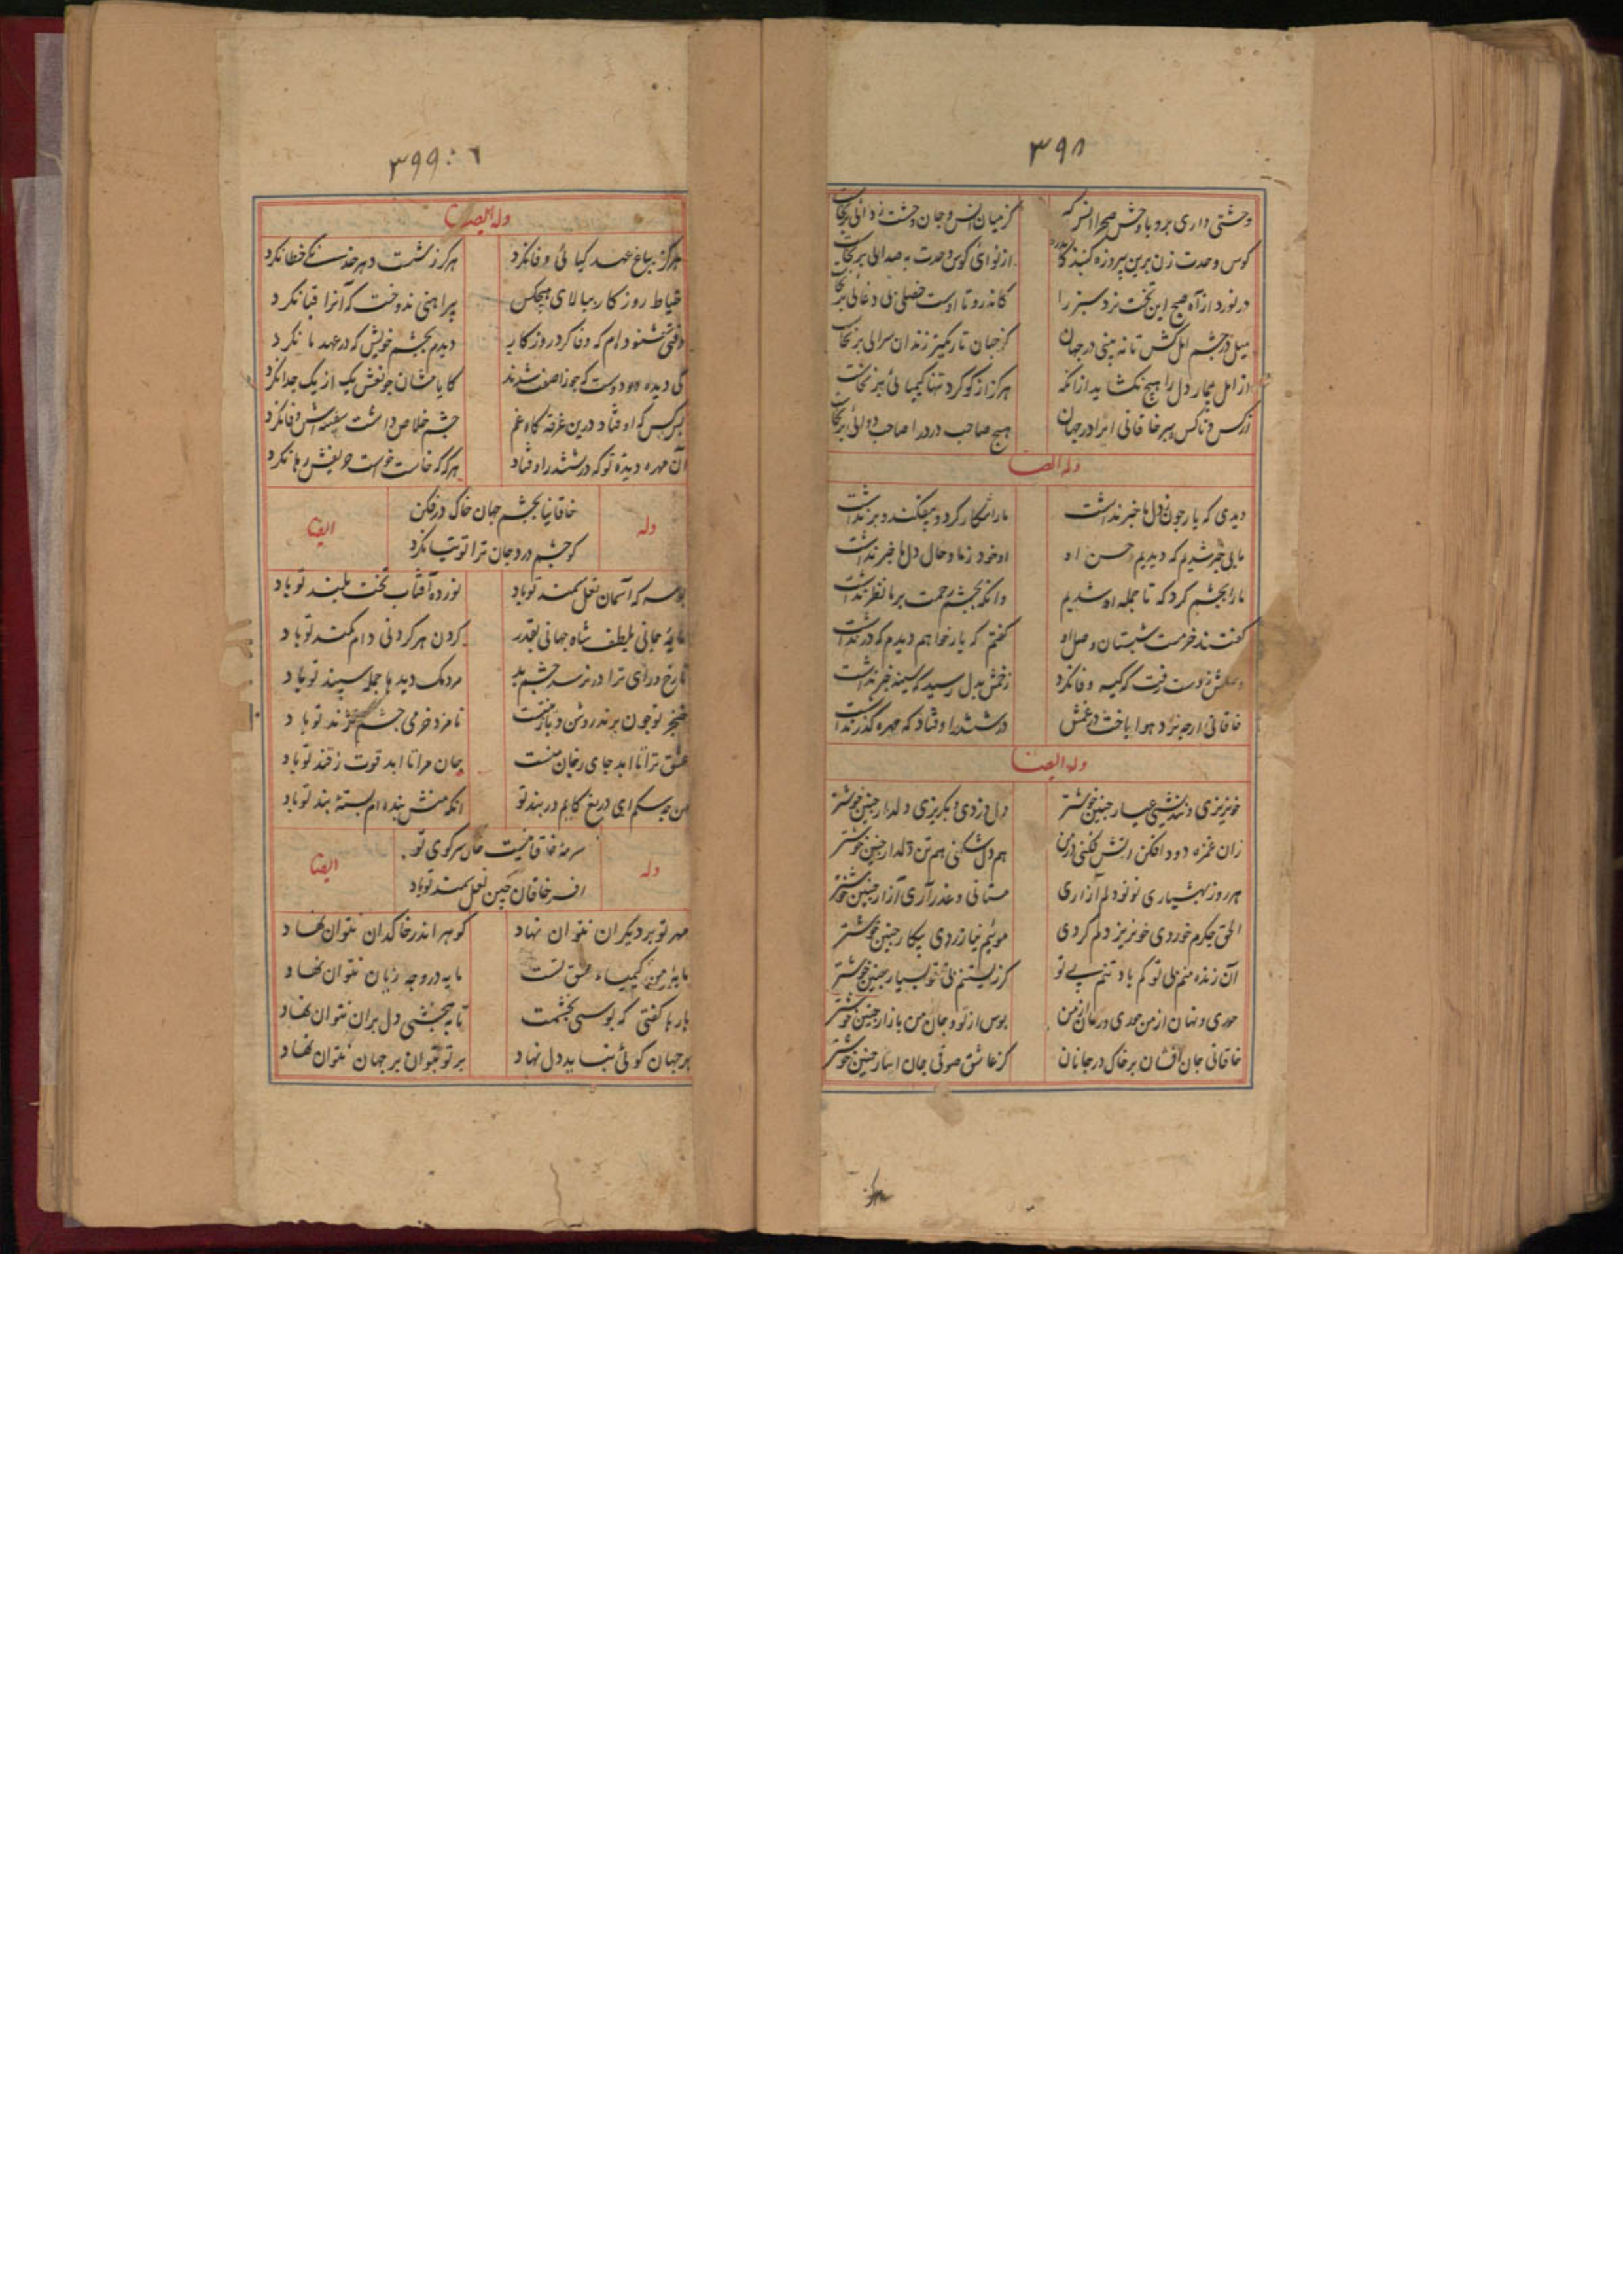 ۳۹۸
وحشتی داری برو با وحش صحرا انس کر کز میان انس و جان وحشت زدائی برنخاست
کوس وحدت زن برین پیروزه گنبد کاندرو از نوای کوس وحدت به صدائی برنخاست
در نورد از آه صبح این تخت نرد سبز را کاندرو تا اوست خصلی بی دغائی برنخاست
میل در چشم امل کش تا نه بینی در جهان کز جهان تاریکتر زندان سرائی برنخاست
از امل بیمار دل را هیچ نکشاید ازانکه هرگز از گوگرد تنها کیمیائی برنخاست
از کس و ناکس ببر خاقانی ایرا در جهان هیچ صاحب درد را صاحب دوائی برنخاست
وله ایضا
دیدی که یار چون ز دل ما خبر نداشت ما را شکار کرد و بیفکند و برنداشت
ما بی خبر شدیم که دیدیم حسن او او خود ز ما و حال دل ما خبر نداشت
ما را بچشم کرد که تا جمله او شدیم وانکه بچشم رحمت بر ما نظر نداشت
گفتند خرمست شبستان وصل او گفتم که بار خواهم دیدم که در نداشت
وصلش ز دست رفت که کیسه وفا نکرد زخمش بدل رسید که سینه خبر نداشت
خاقانی ارچه نرد هوا باخت در غمش در ششدر اوفتاد که مهره گذر نداشت
وله ایضا
خونریزی و نندیشی عیار چنین خوشتر دل دزدی و بگریزی دلدار چنین خوشتر
زان غمزه دود افکن آتش فکنی در من هم دل شکنی هم تن دلدار چنین خوشتر
هر روز بهشیاری نو نو دلم آزاری مستانی و عذر آری آزار چنین خوشتر
الحق جگرم خوردی خونریز دلم کردی موئیم نیازردی پیکار چنین خوشتر
آن زنده منم بی تو کم باد تنم بی تو کز زیستنم بی تو بسیار چنین خوشتر
خوری و نهان از من بوس از تو و جان من بازار چنین خوشتر
خاقانی جان افشان بر خاک در جانان کز عاشق صوفی جان ایثار چنین خوشتر
۳۹۹
وله ایضا
هرگز بباغ عهد گیائی وفا نکرد هرگز ز شست دهر خدنگی خطا نکرد
خیاط روزگار ببالای هیچکس پیراهنی ندوخت که آنرا قبا نکرد
وقتی شنوده ام که وفا کرد روزگار دیدم بچشم خویش که در عهد ما نکرد
کی دیده دو دوست که جوزا صفت شدند کایامشان چو نعش یک از یک جدا نکرد
کس کو اوفتاد درین غرقه گاه غم چشم خلاص داشت سفینه اش وفا نکرد
آن مهره دیده تو که در ششدر اوفتاد هرگه که خاست خواست حریفش رها نکرد
وله
خاقانیا بچشم جهان خاک در فکن
کو چشم درد جان ترا توتیا نکرد
ایضا
که آسمان نعل سمند تو باد نور ده آفتاب بخت بلند تو باد
مایه جانی بلطف شاه جهانی بقدر گردن هر گردنی دام کمند تو باد
تا رخ و رای ترا در نرسد چشم بد مردمک دیدها جمله سپند تو باد
خنجر تو چون پرند روشن و بازینت نامزد خرمی جسم نژند تو باد
عشق ترا تا ابد جای ز جان منست جان مرا تا ابد قوت ز قند تو باد
من چه سگم ای دریغ کایم در بند تو انکه منش بنده ام بسته بند تو باد
وله
سرمه خاقانیست خاک سر کوی تو
افسر خاقان چین نعل سمند تو باد
ایضا
مهر تو بر دیگران نتوان نهاد گوهر اندر خاکدان نتوان نهاد
مایه من کیمیاء عشق تست مایه در وجه زیان نتوان نهاد
بارها گفتی که بوسی بخشمت تا نبخشی دل بران نتوان نهاد
بر جهان گوئی نباید دل نهاد بر تو بتوان بر جهان نتوان نهاد